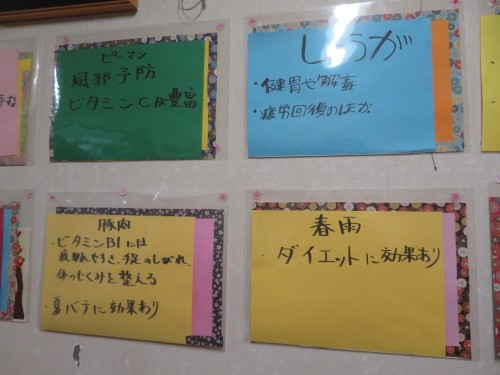 ピーマン
風邪予防
ビタミンCが豊富
しょうが
・健胃や解毒
・疲労回復のほか
豚肉
・ビタミンB1には
疲れやすさ、手足のしびれ、
体のむくみを整える
・夏バテに効果あり
春雨
・ダイエットに効果あり